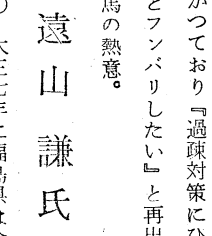 がつており『過疎対策にひ
とフンバリしたい』と再出
馬の熱意。
遠山謙氏
大正七年